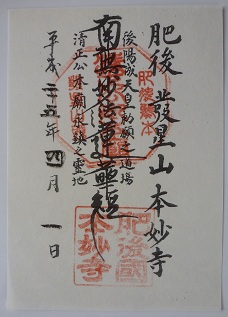 肥後 發星山 本妙寺
後陽成天皇勅願之道場
南無妙法蓮華経
清正公本願永鎮之霊地
平成二十五年四月一日
肥後熊本
肥後國
本妙寺